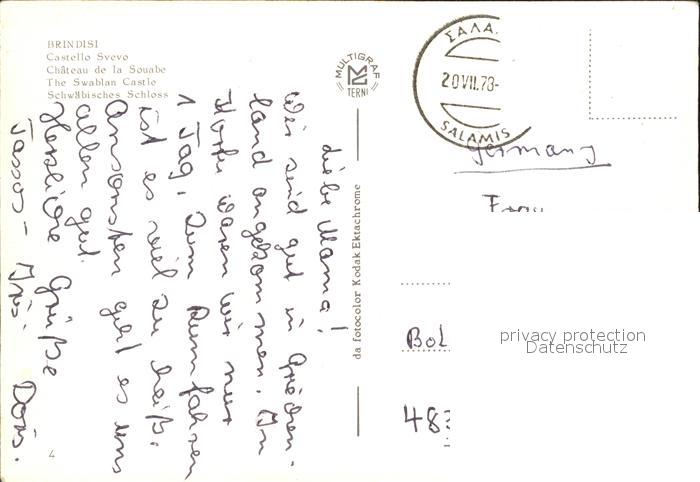 BRINDISI
Castello Svevo
Château de la Souabe
The Swabian Castle
Schwäbisches Schloss
MULTIGRAF
TERNI
ΣΑΛΑ.
20VII.78-
SALAMIS
Germany
Frau
Bol
483
privacy protection
Datenschutz
da fotocolor Kodak Ektachrome
Liebe Mama!
Wir sind gut in Griechen-
land angekommen. In
Korfu waren wir nur
1 Tag, zum Rumfahren
ist es viel zu heiß.
Ansonsten geht es uns
allen gut.
Herzliche Grüße
Tassos - Iris Doris.
4